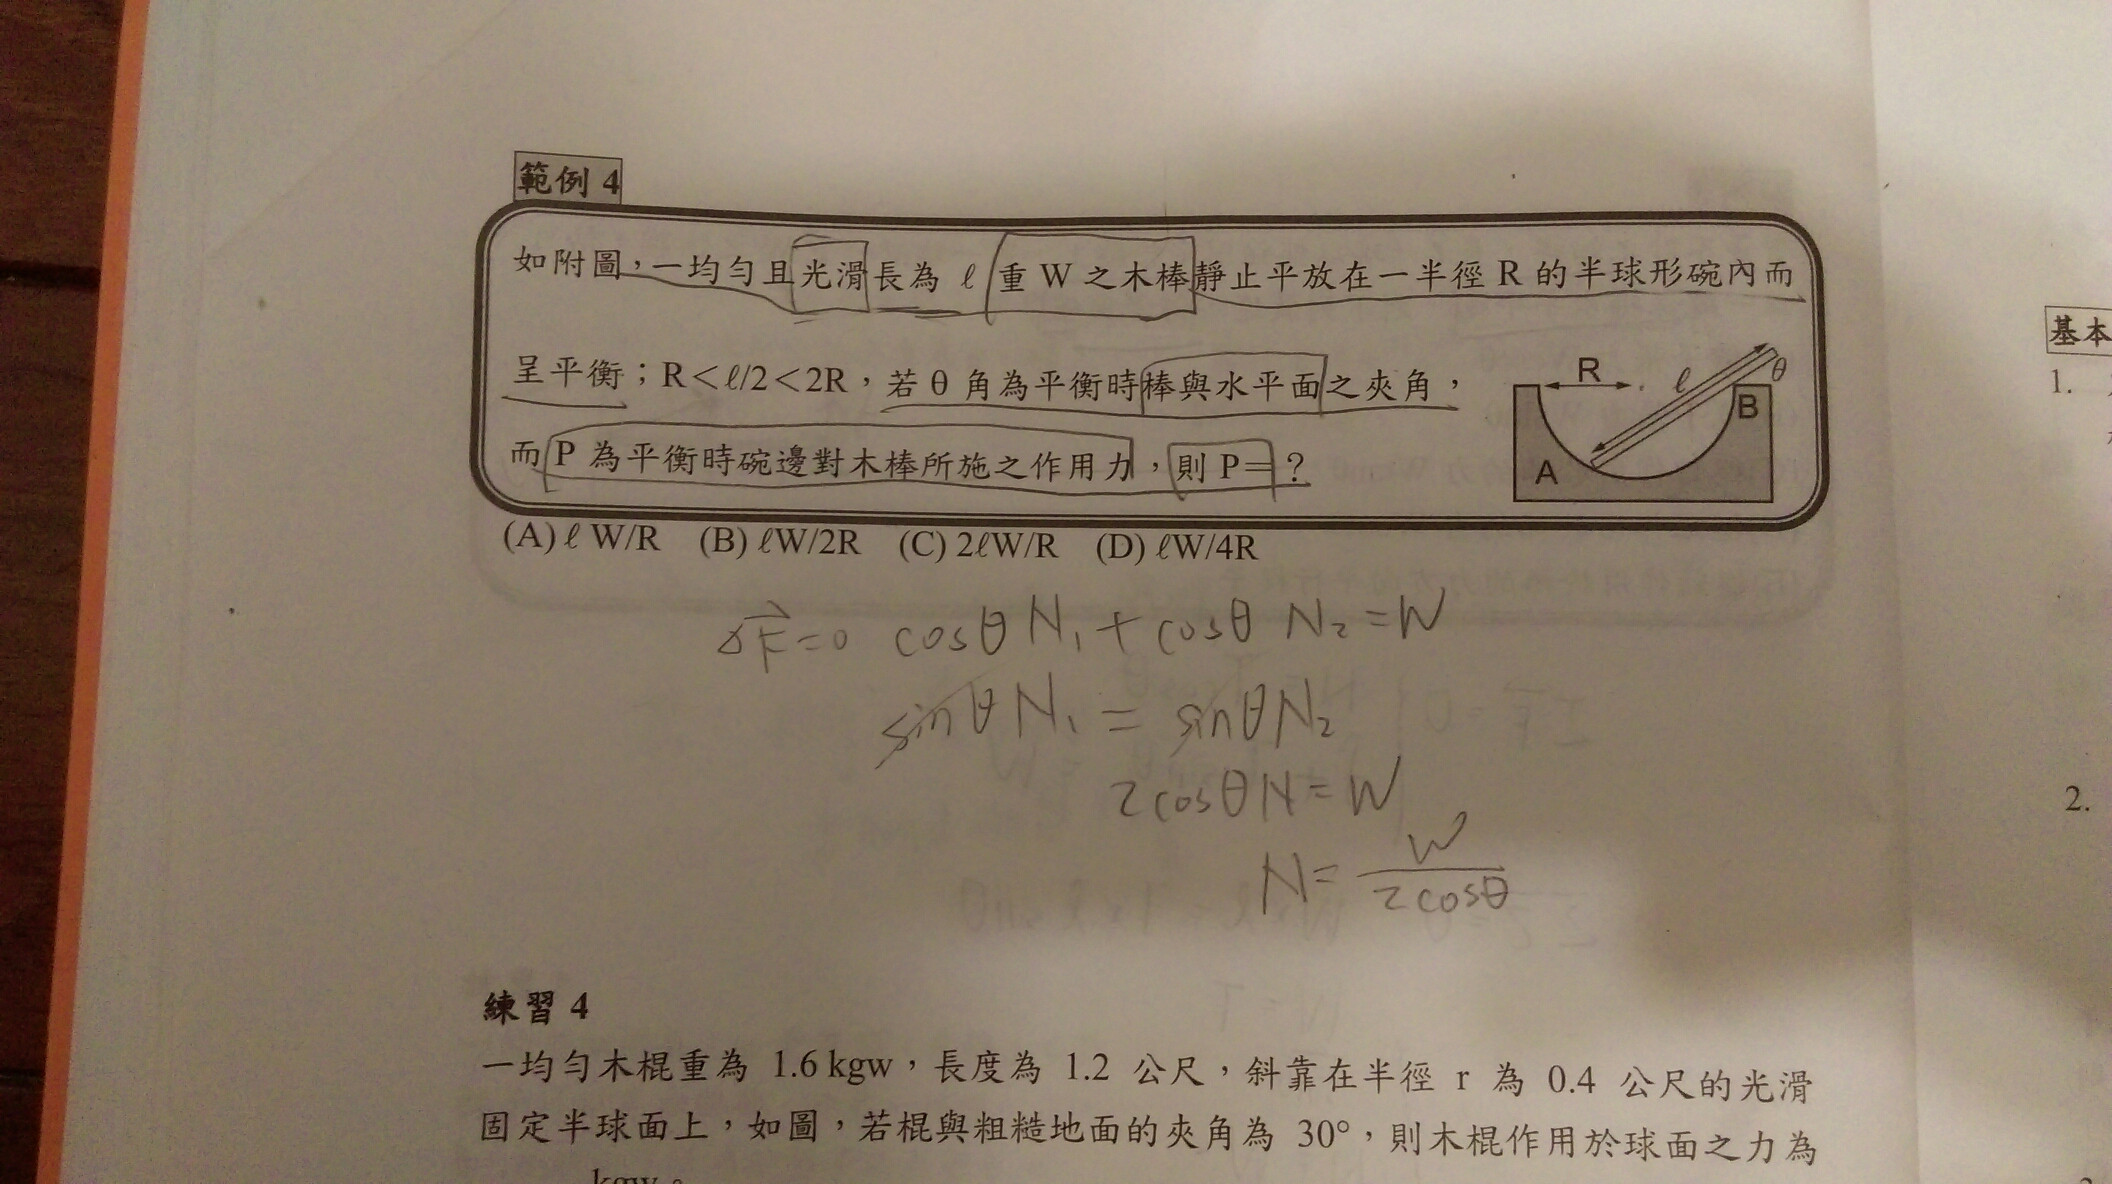 範例 4
如附圖，一均勻且光滑長為 ℓ 重 W 之木棒靜止平放在一半徑 R 的半球形碗內而
呈平衡；R＜ℓ/2＜2R，若 θ 角為平衡時棒與水平面之夾角，
而 P 為平衡時碗邊對木棒所施之作用力，則 P=？
R ℓ θ
A B
(A) ℓ W/R (B) ℓW/2R (C) 2ℓW/R (D) ℓW/4R
cosθ N₁ + cosθ N₂ = W
sinθ N₁ = sinθ N₂
2cosθ N = W
N = W/2cosθ
練習 4
一均勻木棍重為 1.6 kgw，長度為 1.2 公尺，斜靠在半徑 r 為 0.4 公尺的光滑
固定半球面上，如圖，若棍與粗糙地面的夾角為 30°，則木棍作用於球面之力為
kgw。
基本
1.
2.